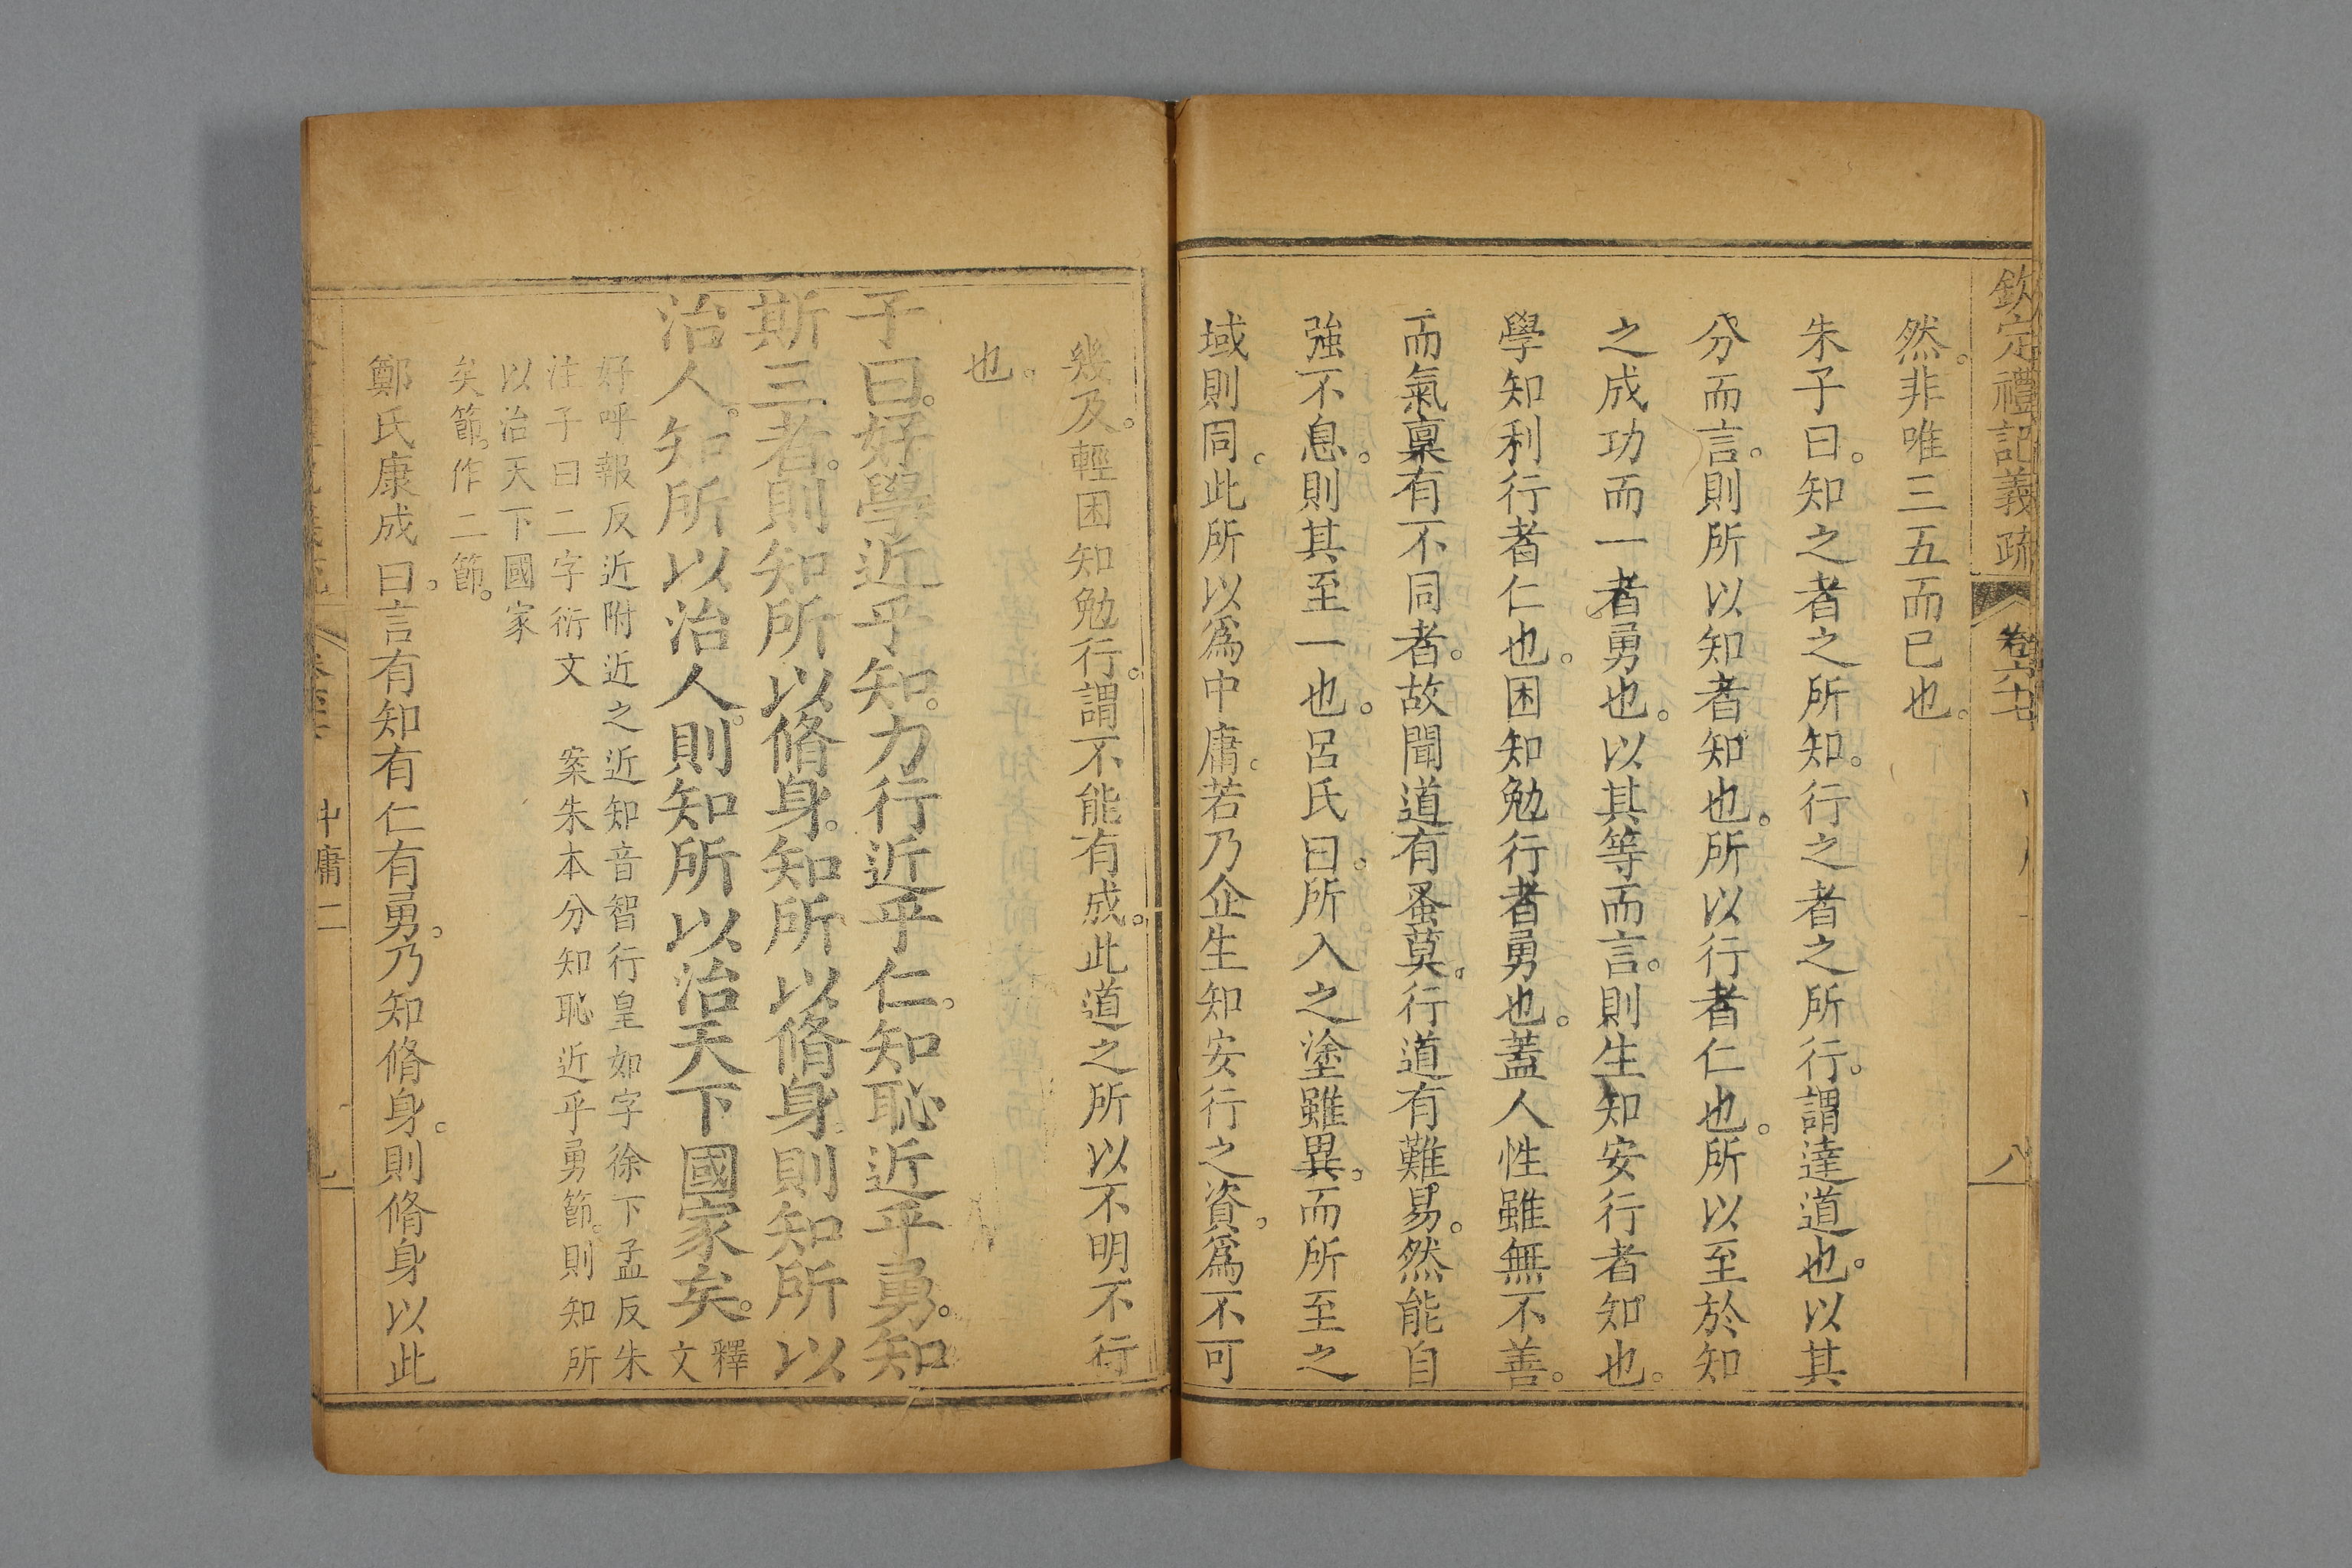 欽定禮記義疏 卷六十七 八
然。非唯三五而已也。
朱子曰。知之者之所知。行之者之所行。謂達道也。以其
分而言。則所以知者知也。所以行者仁也。所以至於知
之成功而一者勇也。以其等而言。則生知安行者知也。
學知利行者仁也。困知勉行者勇也。蓋人性雖無不善。
而氣稟有不同者。故聞道有蚤莫。行道有難易。然能自
強不息。則其至一也。呂氏曰。所入之塗雖異。而所至之
域則同。此所以爲中庸。若乃企生知安行之資。爲不可
幾及。輕困知勉行。謂不能有成。此道之所以不明不行
也。
子曰。好學近乎知。力行近乎仁。知恥近乎勇。知
斯三者。則知所以脩身。知所以脩身。則知所以
治人。知所以治人。則知所以治天下國家矣。釋文
好呼報反近附近之近知音智行皇如字徐下孟反朱
注子曰二字衍文 案朱本分知恥近乎勇節。則知所
以治天下國家
矣節。作二節。
鄭氏康成曰。言有知有仁有勇。乃知脩身。則脩身以此
中庸二